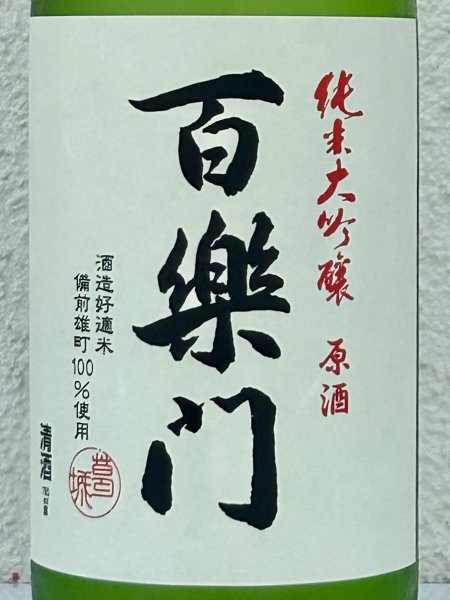 純米大吟醸 原酒
百樂门
酒造好適米
備前雄町100%使用
清酒
葛城